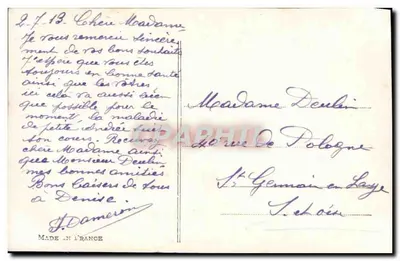 2.7.13. Chère Madame
Je vous remercie sincère-
ment de vos bons souhaits
J'espère que vous êtes
toujours en bonne santé
ainsi que les vôtres
ici cela va aussi bien
que possible pour le
moment, la maladie
de petite Andrée suit
son cours. Recevez
chère Madame ainsi
que Monsieur Deulin
mes bonnes amitiés
Bons baisers de tous
à Denise.
J. Dameron
MADE IN FRANCE
Madame Deulin
40 rue de Pologne
St Germain en Laye
S. et Oise